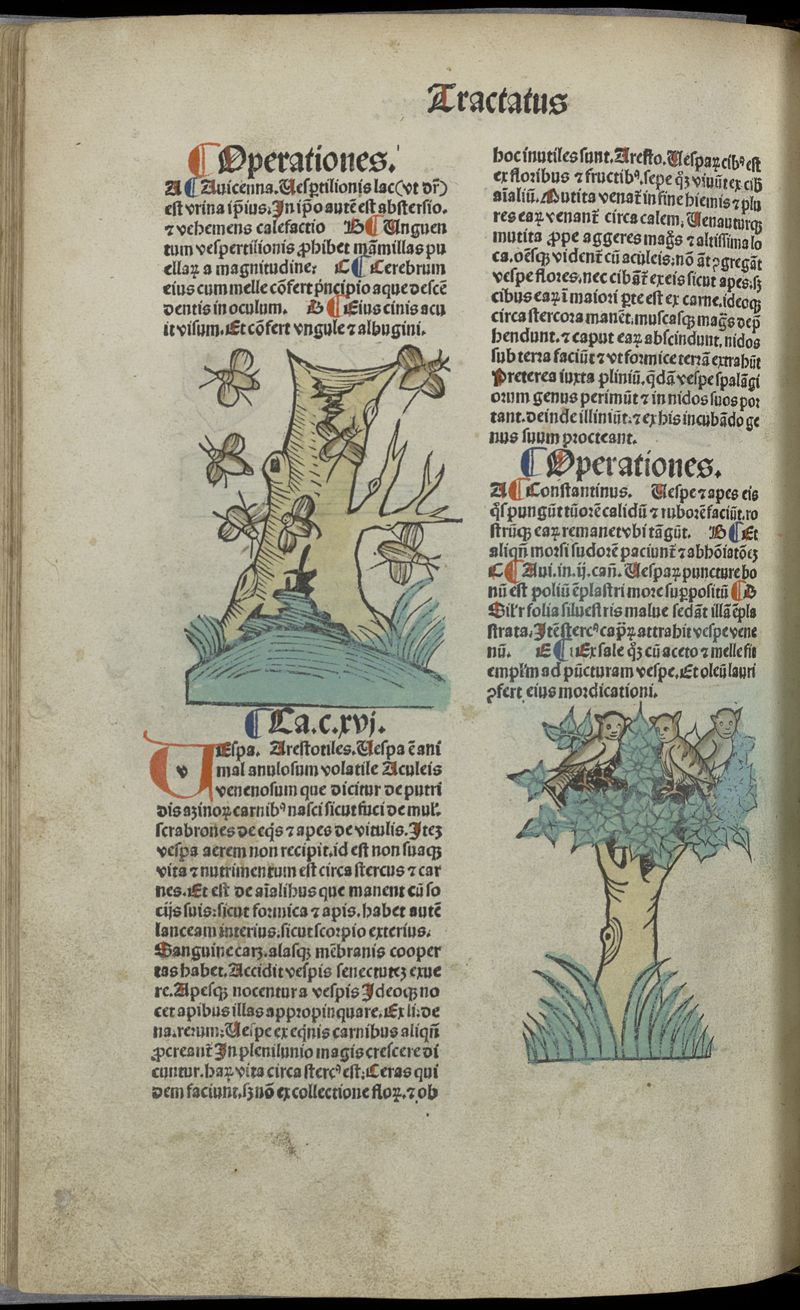 Tractatus
¶ Operationes.
A ¶ Auicenna. Uesptilionis lac (vt dr̄)
est vrina ip̄ius. In ip̄o autē est abstersio.
⁊ vehemens calefactio B ¶ Unguen
tum vespertilionis ꝓhibet māmillas pu
ellaꝝ a magnitudine: C ¶ Cerebrum
eius cum melle cōfert pͥncipio aque descē
dentis in oculum. D ¶ Eius cinis acu
it visum. Et cōfert vngule ⁊ albugini.
¶ Ca. c. xvj.
UEspa. Arestotiles. Uespa ē ani
mal anulosum volatile Aculeis
venenosum que dicitur de putri
dis azinoꝝ carnibꝰ nasci sicut fuci de mul'.
scrabrones de eqͥs ⁊ apes de vitulis. Iteꝫ
vespa aerem non recipit. id est non suaqꝫ
vita ⁊ nutrimentum est circa stercus ⁊ car
nes. Et est de aīalibus que manent cū so
cijs suis: sicut formica ⁊ apis. habet autē
lanceam interius. sicut scorpio exterius.
Sanguine carꝫ. alasqꝫ mēbranis cooper
tas habet. Accidit vespis senectuteꝫ exue
re. Apesqꝫ nocentur a vespis Ideoqꝫ no
cet apibus illas appropinquare. Ex li. de
na. rerum: Uespe ex eqͥnis carnibus aliqn̄
ꝓcreant᷑ In plenilunio magis crescere di
cuntur. haꝝ vita circa stercꝰ est: Ceras qui
dem faciunt. sꝫ nō ex collectione floꝝ. ⁊ ob
hoc inutiles sunt. Aresto. Uespaꝝ cibꝰ est
ex floribus ⁊ fructibꝰ. sepe qꝫ viuūt ex cib
aīaliū. Mutita venat᷑ in fine hiemis ⁊ plu
res eaꝝ venant᷑ circa calem. Uenanturqꝫ
mutita ꝓpe aggeres mag̃s ⁊ altissima lo
ca. oēsqꝫ vident᷑ cū aculeis: nō āt ꝯgregāt
vespe flores. nec cibāt᷑ ex eis sicut apes. sꝫ
cibus eaꝝ ī maiori ꝑte est ex carne. ideoqꝫ
circa stercora manēt. muscasqꝫ mag̃s dep̄
hendunt. ⁊ caput eaꝝ abscindunt. nidos
sub terra faciūt ⁊ vt formice terrā extrahūt
Preterea iuxta pliniū. qͣdā vespe spalāgi
orum genus perimūt ⁊ in nidos suos por
tant. deinde illiniūt. ⁊ ex his incubādo ge
nus suum procreant.
¶ Operationes.
A ¶ Constantinus. Uespe ⁊ apes eis
qͦs pungūt tūorē calidū ⁊ ruborē faciūt. ro
strūqꝫ eaꝝ remanet vbi tāgūt. B ¶ Et
aliqn̄ morsi sudorē paciunt᷑ ⁊ abhōiatōeꝫ
C ¶ Aui. in. ij. can̄. Uespaꝝ puncture bo
nū est poliū ēplastri more suppositū ¶ D
Sil'r folia siluestris malue sedāt illā ēpla
strata. Itē stercꝰ capͣꝝ attrahit vespe vene
nū. E ¶ Ex sale qꝫ cū aceto ⁊ melle fit
empl'm ad pūcturam vespe. Et oleū lauri
ꝯfert eius mordicationi.